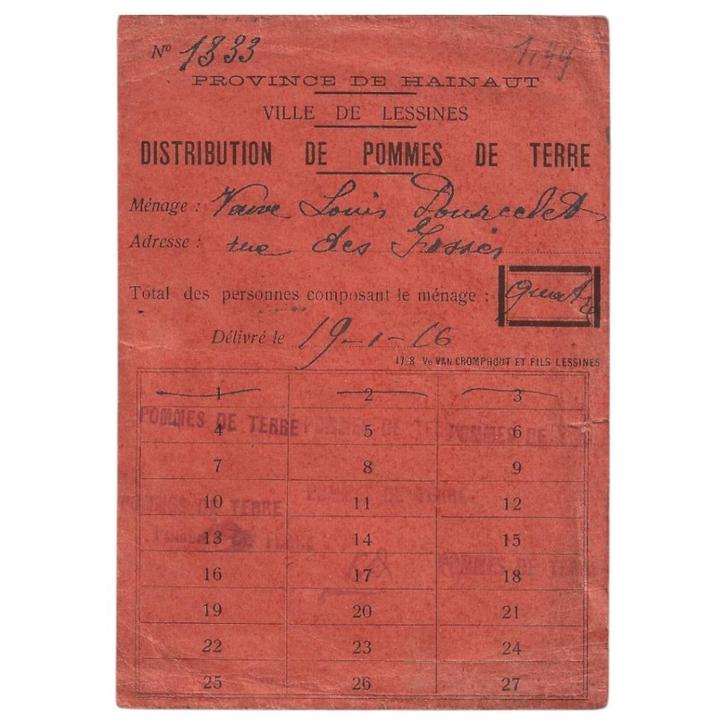 N° 1333 1,44
PROVINCE DE HAINAUT
VILLE DE LESSINES
DISTRIBUTION DE POMMES DE TERRE
Ménage : Veuve Louis
Adresse : rue des
Total des personnes composant le ménage : quatre
Délivré le 19-1-16
17-8 Ve VAN CROMPHOUT ET FILS LESSINES
1 2 3
POMMES DE TERRE POMMES DE TERRE POMMES DE
4 5 6
7 8 9
POMMES DE TERRE POMMES DE TERRE
10 11 12
POMMES DE TERRE POMMES DE TERRE
13 14 15
16 17 18
19 20 21
22 23 24
25 26 27